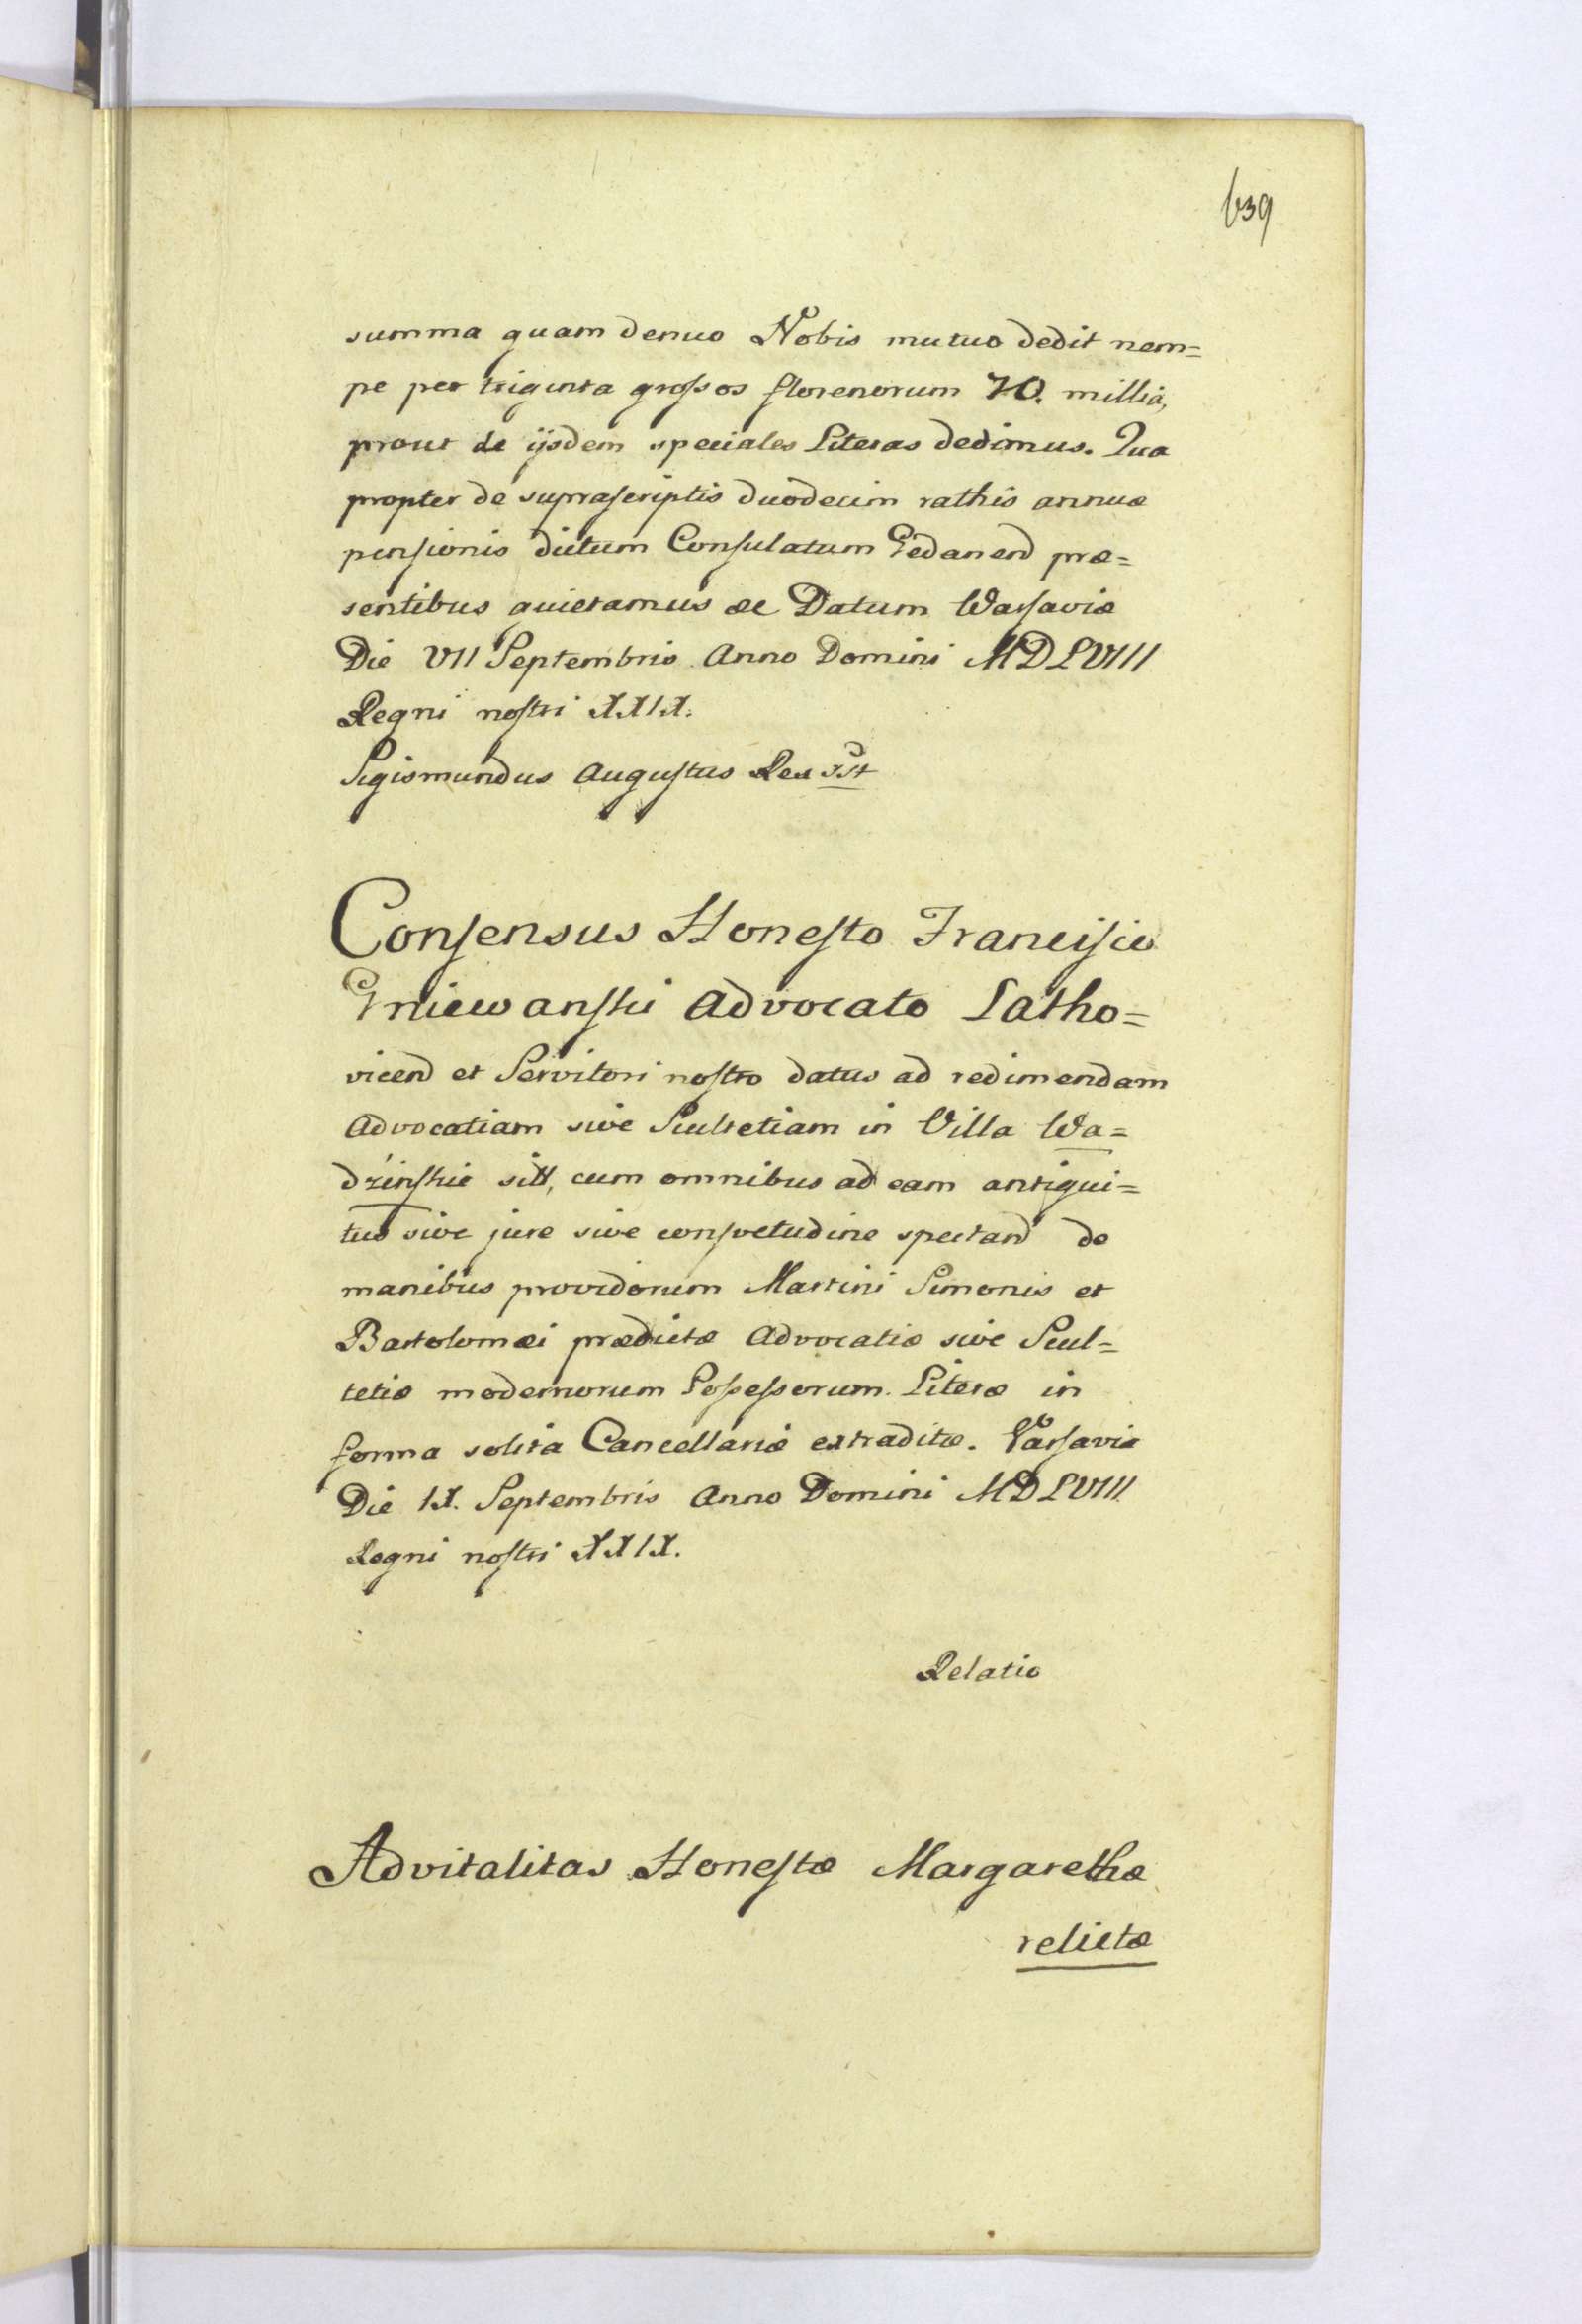 639
summa quam denuo Nobis mutuo dedit nem=
pe per triginta grossos florenorum 70. millia,
prout de ijsdem speciales Literas dedimus. Qua
propter de suprascriptis duodecim rathis annuæ
pensionis dictum Consulatum Gedanend præ=
sentibus quietamus &c Datum Warsaviæ
Die VII Septembris Anno Domini MDLVIII
Regni nostri XXIX.
Sigismundus Augustus Rex sst
Consensus Honesto Francisco
Gniewanski Advocato Latho=
vicend et Servitori nostro datus ad redimendam
Advocatiam sive Scultetiam in Villa Wa=
dzinskie sitt, cum omnibus ad eam antiqui=
tus sive jure sive consvetudine spectand de
manibus providorum Martini Simonis et
Bartolomæi prædictæ Advocatiæ sive Scul=
tetiæ modernorum Possessorum. Literæ in
forma solita Cancellariæ extraditæ. Varsaviæ
Die IX. Septembris Anno Domini MDLVIII
Regni nostri XXIX.
Relatio
Advitalitas Honestæ Margarethæ
relictæ